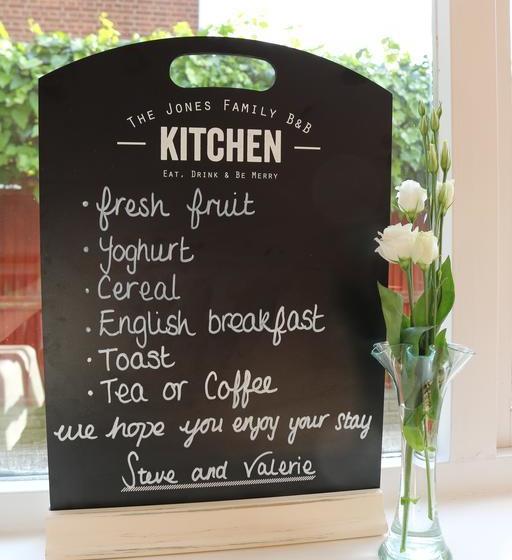 The Jones Family B&B
KITCHEN
Eat, Drink & Be Merry
• fresh fruit
• Yoghurt
• Cereal
• English breakfast
• Toast
• Tea or Coffee
we hope you enjoy your stay
Steve and Valerie